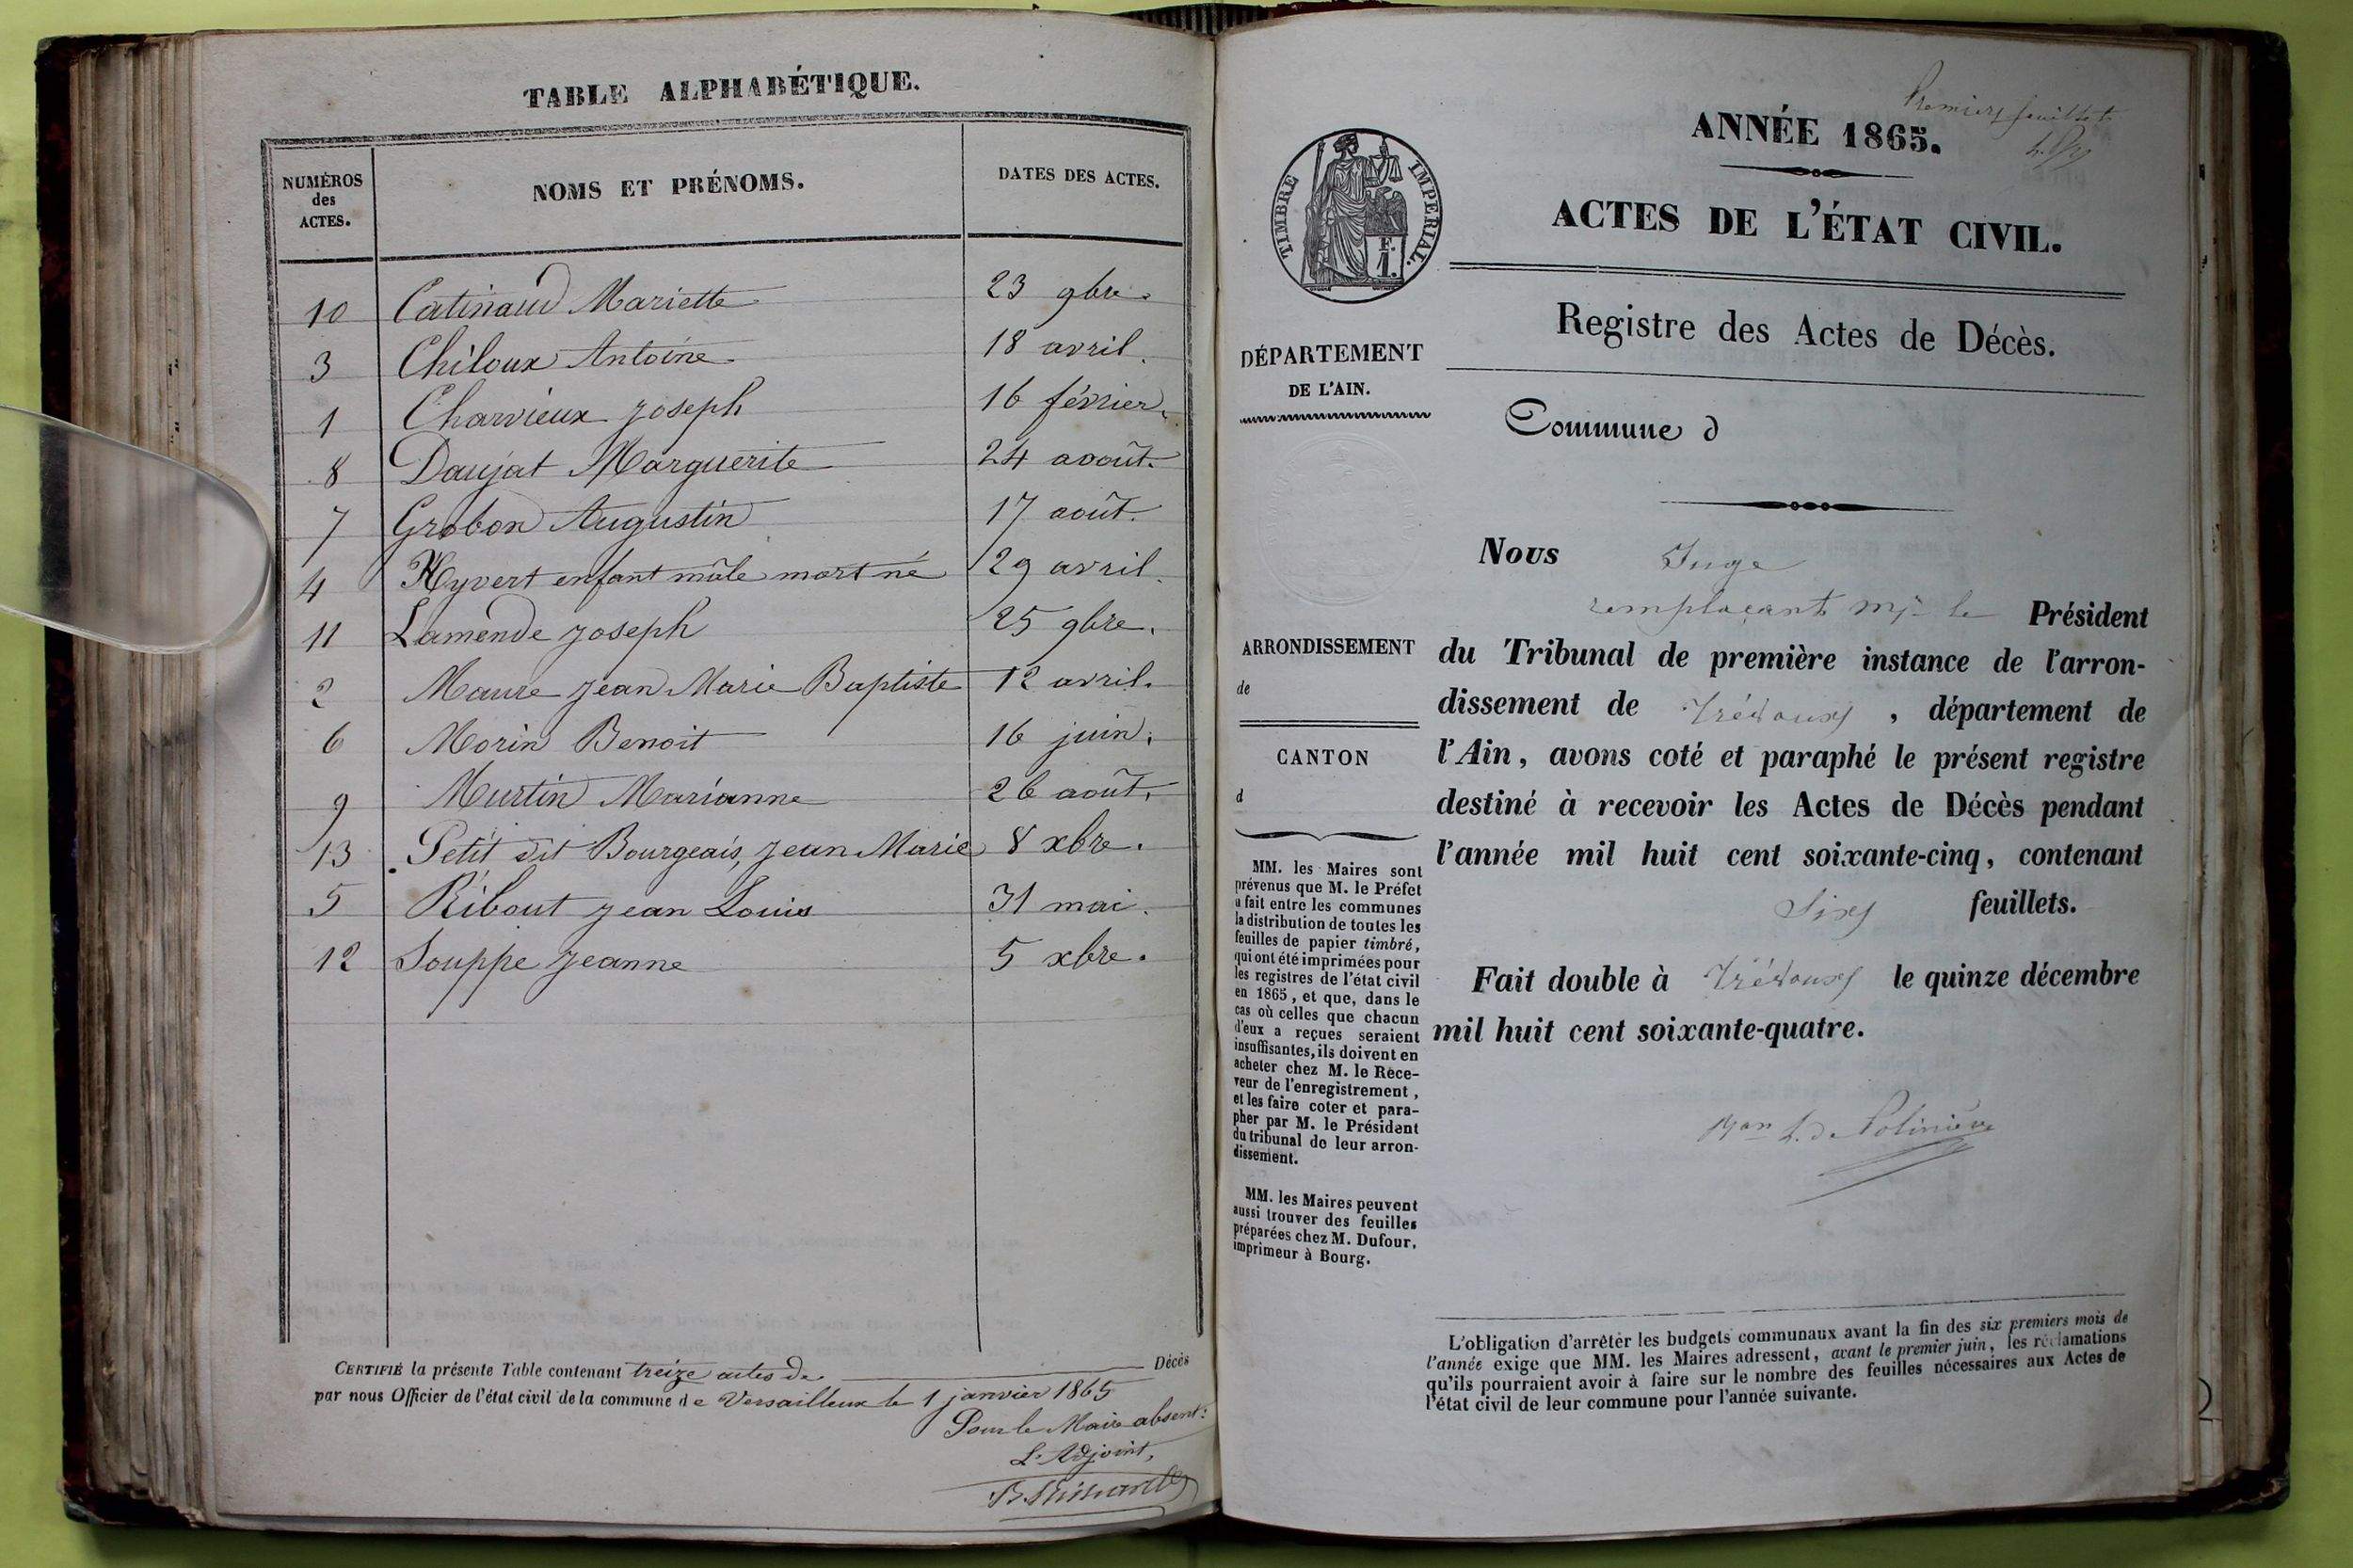 TABLE ALPHABÉTIQUE.
NUMÉROS
des
ACTES.
NOMS ET PRÉNOMS.
DATES DES ACTES.
10 Catinaud Mariette 23 9bre.
3 Chiloux Antoine 18 avril.
1 Charvieux Joseph 16 février.
8 Daujat Marguerite 24 aoout.
7 Grobon Augustin 17 août.
4 Hyvert enfant mâle mort né 29 avril.
11 Lamende Joseph 25 9bre.
2 Maure Jean Marie Baptiste 12 avril.
6 Morin Benoit 16 juin.
9 Murtin Marianne 26 août.
13 Petit dit Bourgeais, Jean Marie 8 xbre.
5 Ribout Jean Louis 31 mai.
12 Souppe Jeanne 5 xbre.
CERTIFIÉ la présente Table contenant treize actes de Décès
par nous Officier de l'état civil de la commune de Versailleux le 1 janvier 1865
Pour le Maire absent:
L'Adjoint,
Premier feuillet
ANNÉE 1865.
ACTES DE L'ÉTAT CIVIL.
TIMBRE IMPERIAL.
F.
1.
Registre des Actes de Décès.
DÉPARTEMENT
DE L'AIN.
Commune d
Nous Juge
remplaçant Mr le Président
du Tribunal de première instance de l'arron-
dissement de Trévoux, département de
l'Ain, avons coté et paraphé le présent registre
destiné à recevoir les Actes de Décès pendant
l'année mil huit cent soixante-cinq, contenant
Six feuillets.
Fait double à Trévoux le quinze décembre
mil huit cent soixante-quatre.
ARRONDISSEMENT
de
CANTON
d
MM. les Maires sont
prévenus que M. le Préfet
a fait entre les communes
la distribution de toutes les
feuilles de papier timbré,
qui ont été imprimées pour
les registres de l'état civil
en 1865, et que, dans le
cas où celles que chacun
d'eux a reçues seraient
insuffisantes, ils doivent en
acheter chez M. le Rece-
veur de l'enregistrement,
et les faire coter et para-
pher par M. le Président
du tribunal de leur arron-
dissement.
MM. les Maires peuvent
aussi trouver des feuilles
préparées chez M. Dufour,
imprimeur à Bourg.
L'obligation d'arrêter les budgets communaux avant la fin des six premiers mois de
l'année exige que MM. les Maires adressent, avant le premier juin, les réclamations
qu'ils pourraient avoir à faire sur le nombre des feuilles nécessaires aux Actes de
l'état civil de leur commune pour l'année suivante.
2